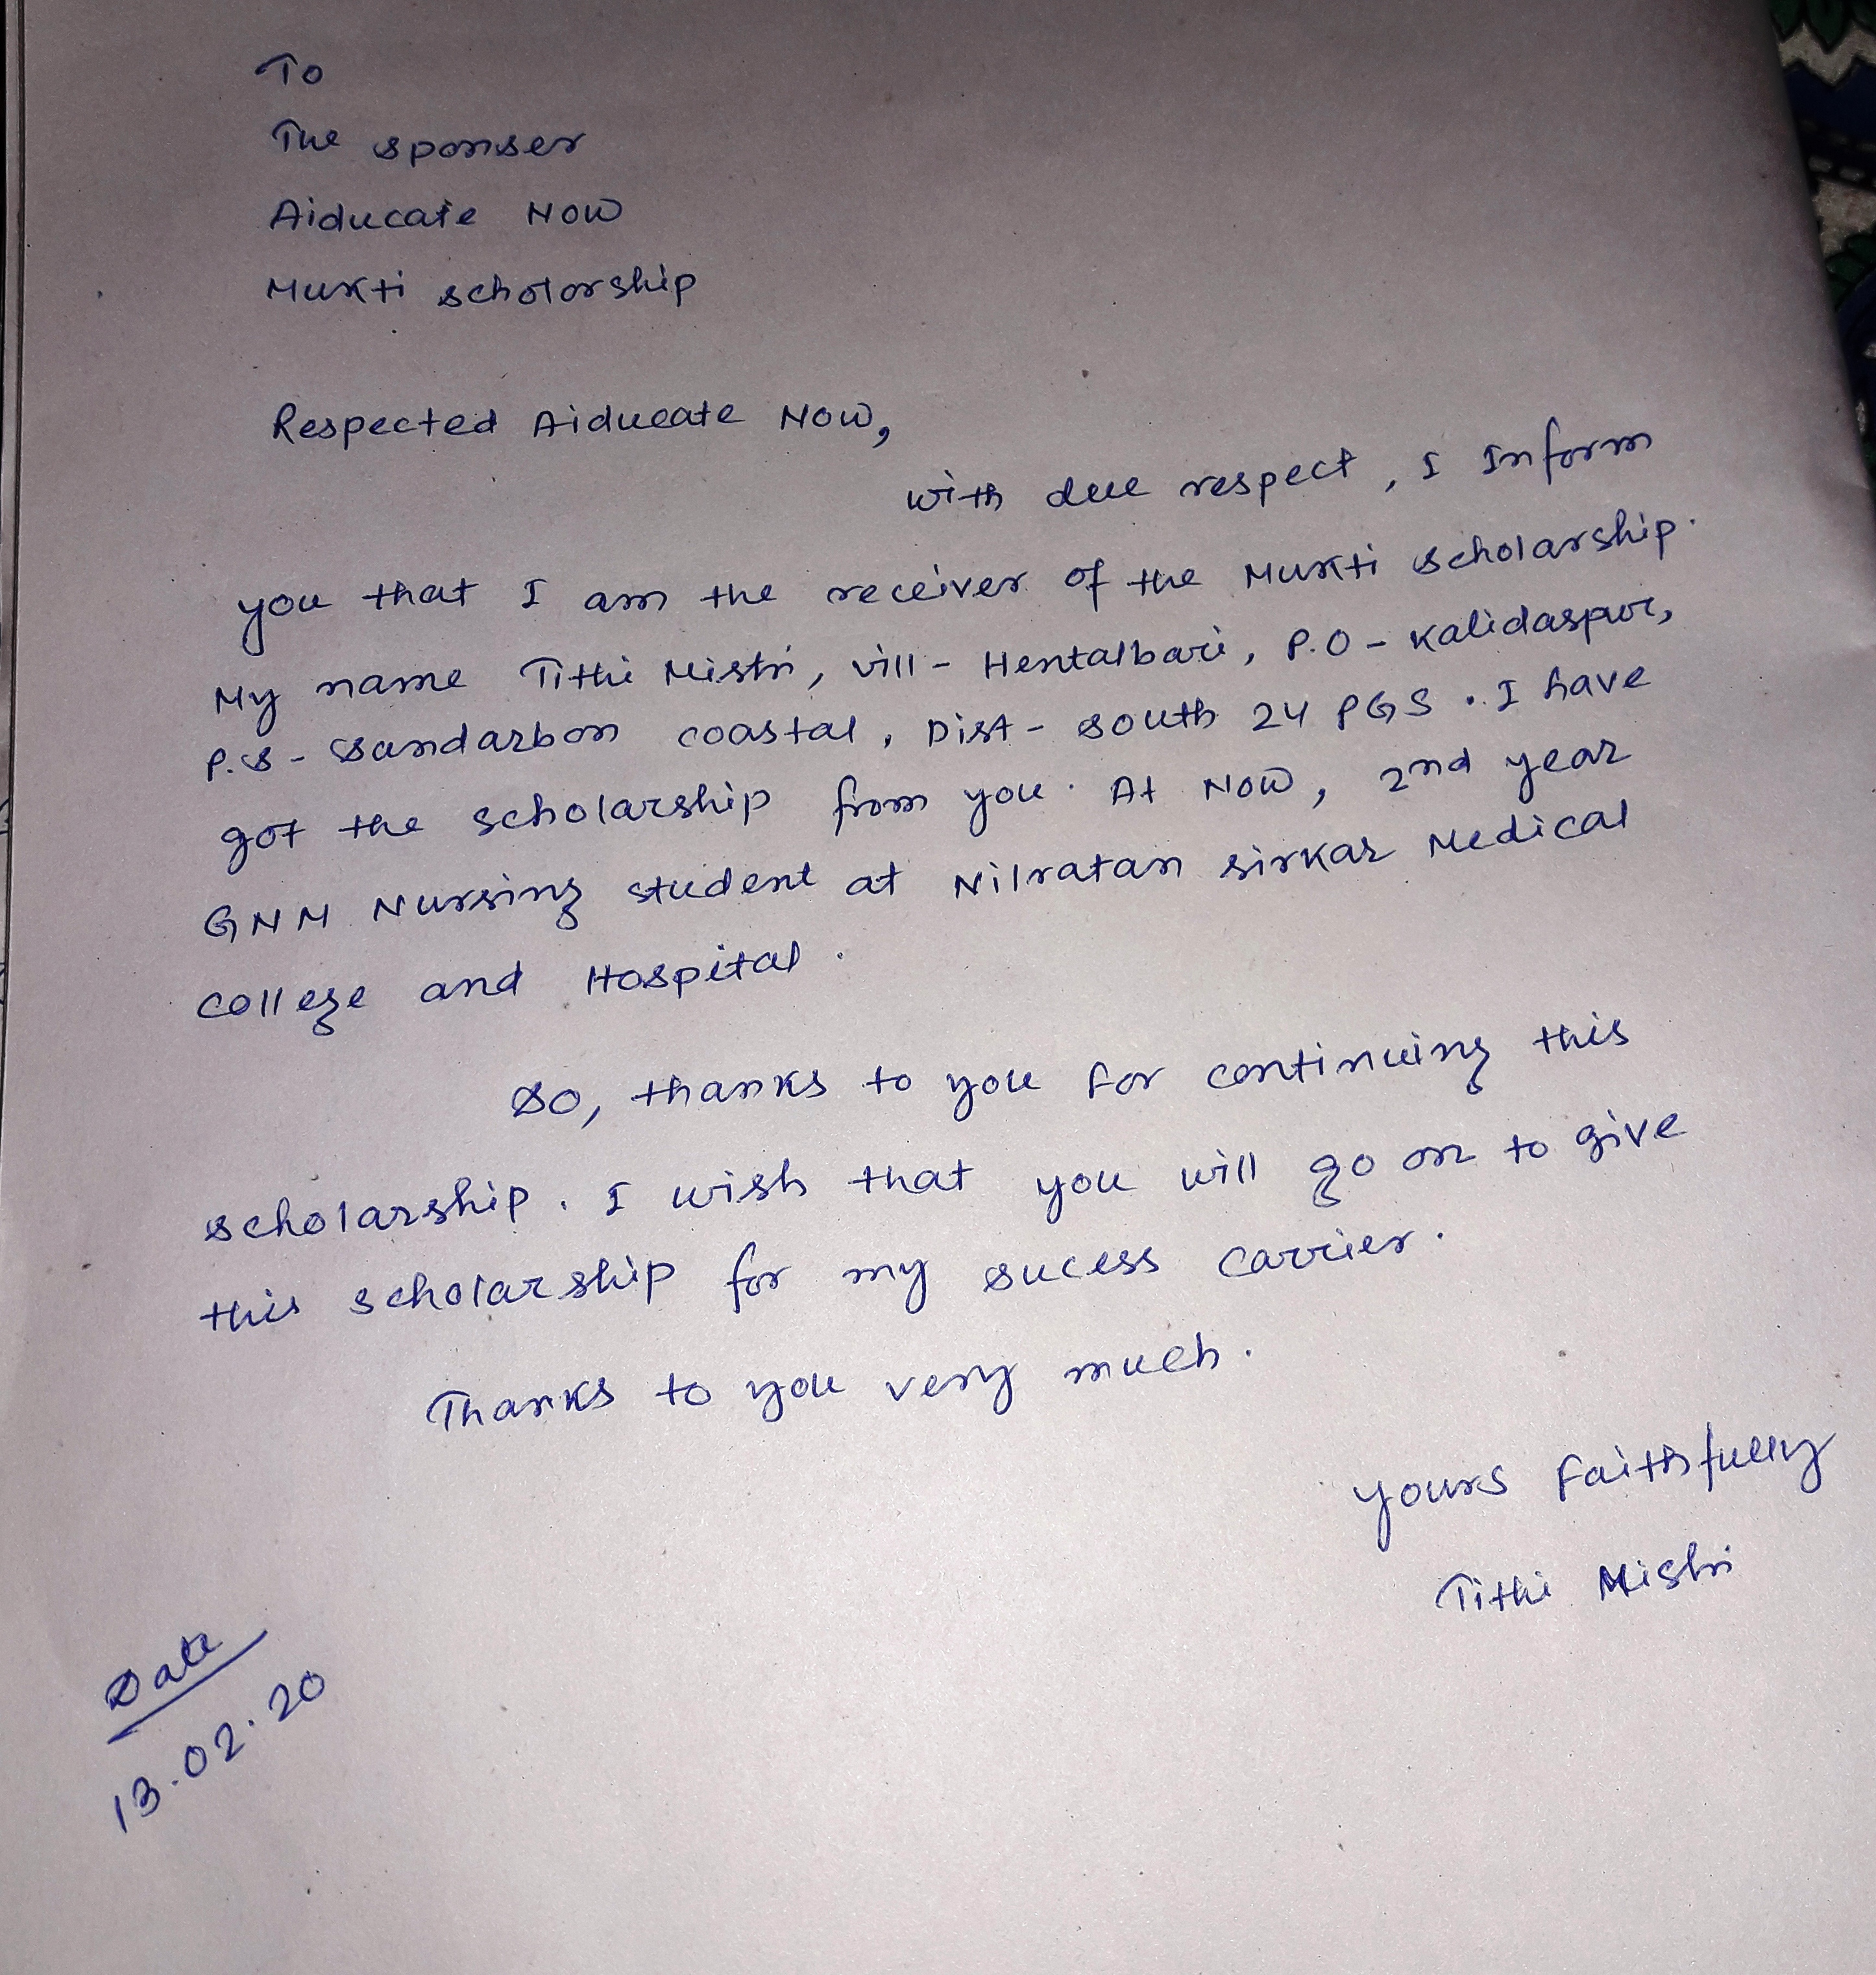 To
The sponser
Aiducate Now
Mukti scholorship
Respected Aiducate Now,
with due respect, I Inform
you that I am the receiver of the Mukti scholarship.
My name Tithi Mistri, vill - Hentalbari, P.O - Kalidaspur,
P.S - Sandarbon coastal, Dist - South 24 PGS. I have
got the scholarship from you. At Now, 2nd year
GNM Nursing student at Nilratan sirkar Medical
college and Hospital.
So, thanks to you for continuing this
scholarship. I wish that you will go on to give
this scholarship for my sucess carrier.
Thanks to you very much.
Yours Faithfully
Tithi Mistri
Date
13.02.20